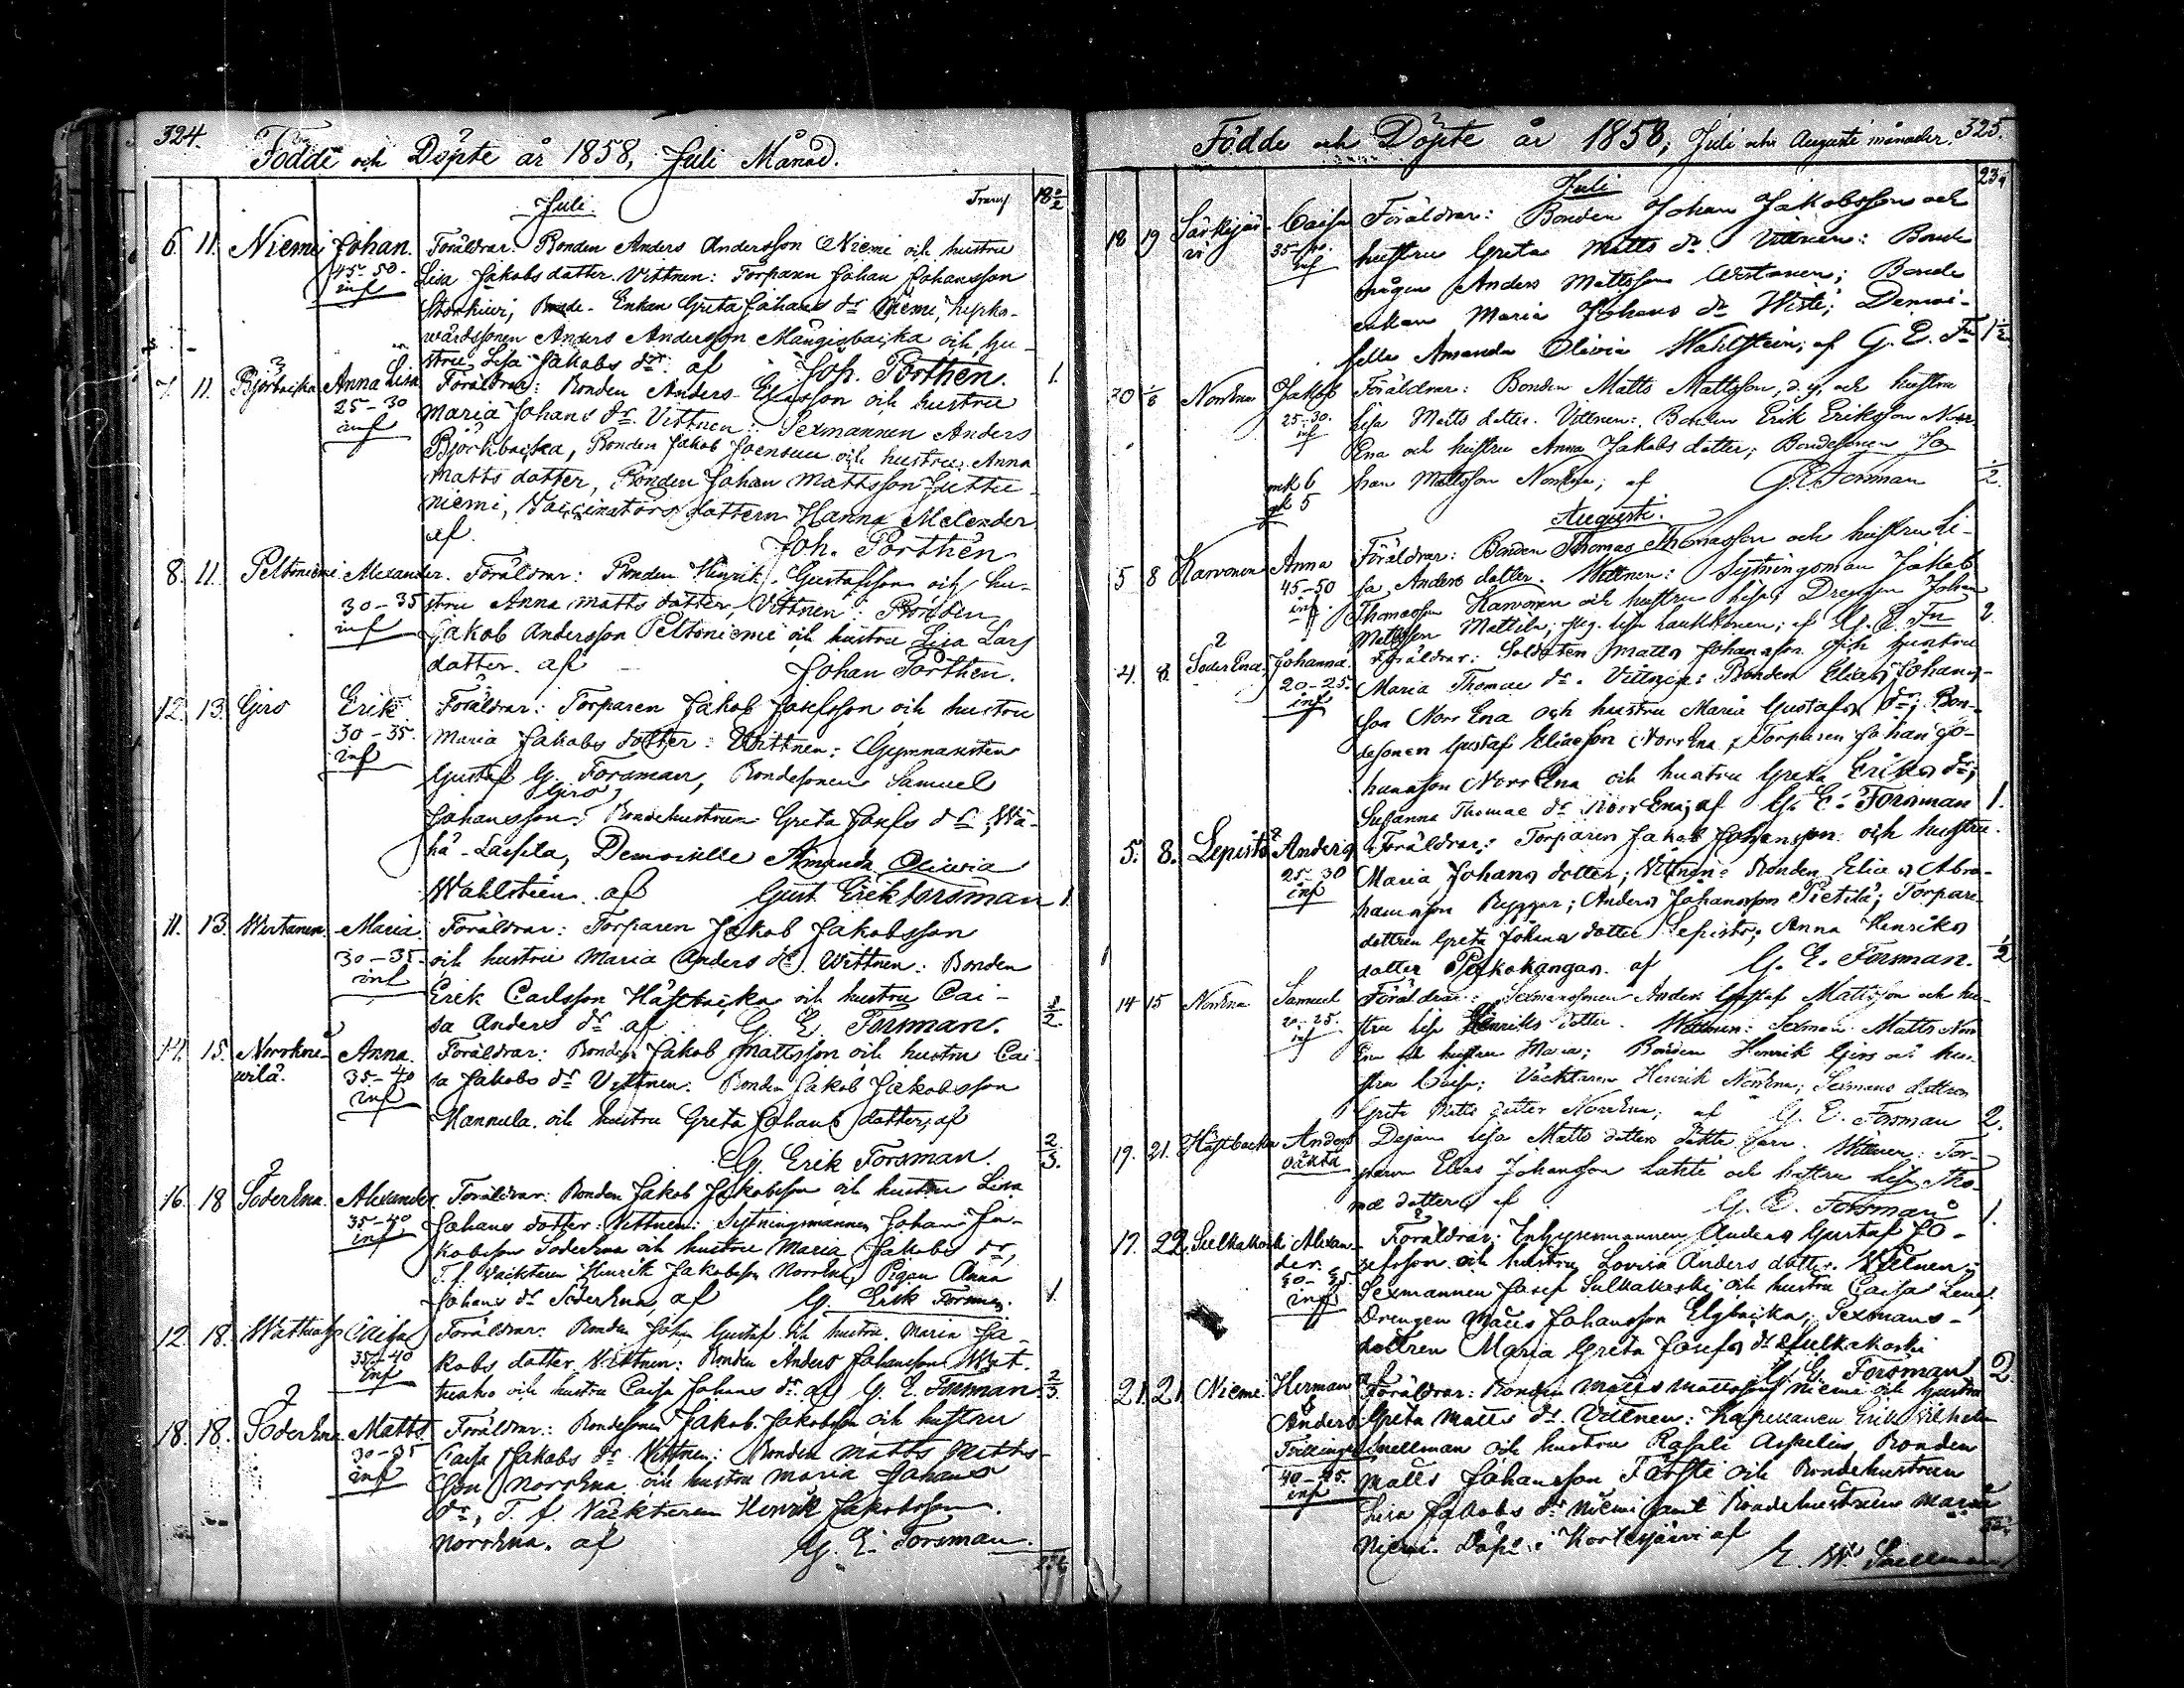 324.
Födde och Döpte år 1858, Juli Månad.
Juli.
6. 11. Niemi Johan. Föräldrar: Bonden Anders Andersson Niemi och hustru
45-50. inf Lisa Jakobs datter. Vittnen: Torparen Johan Johansson
Enkan Greta Johans dr Niemi, Kyrko-
wärdssonen Anders Andersson Mångisbacka och hu-
stru Lisa Jakobs dr. af Joh. Porthén. 1.
7. 11. Björkbacka Anna Lisa Föräldrar: Bonden Anders Eliasson och hustru
25-30 inf Maria Johans dr. Vittnen: Sexmannen Anders
Björkbacka, Bonden Jakob Joensuu och hustru Anna
Matts datter, Bonden Johan Mattsson Juttu-
niemi, Vaccinatörs dattern Hanna Melender
af Joh. Porthén
8. 11. Peltoniemi Alexander. Föräldrar: Bonden Hinrik Gustafsson och hu-
30-35 inf stru Anna Matts datter, Vittnen: Bonden
Jakob Andersson Peltoniemi och hustru Lisa Lars
datter. af Johan Porthén.
12. 13. Giro Erik Föräldrar: Torparen Jakob Josefsson och hustru
30-35. inf Maria Jakobs dotter: Vittnen: Gymnasisten
Gustaf G. Forsman, Bondesonen Samuel
Johansson Giro, Bondehustrun Greta Josefs dr Wä-
hä-Lassila, Demoiselle Amanda Olivia
Wahlstein af Gust. Erik Forsman 1.
11. 13. Wirtanen. Maria Föräldrar: Torparen Jakob Jakobsson
30-35. inf och hustru Maria Anders dr. Vittnen: Bonden
Erik Carlsson Hästbacka och hustru Cai-
sa Anders dr af G. E. Forsman. 1/2.
14. 15. Anna. Föräldrar: Bonden Jakob Mattsson och hustru Cai-
35-40 inf sa Jakobs dr Vittnen. Bonden Jakob Jakobsson
Hannula och hustru Greta Johans datter; af
G. Erik Forsman. 2/3.
16. 18 SöderEna. Alexander. Föräldrar: Bonden Jakob Jakobsson och hustru Lisa
35-40 inf. Johans dotter: Vittnen: Sytningsmannen Johan Ja-
kobsson SöderEna och hustru Maria Jakobs dr,
T. f. Väcktaren Henrik Jakobsson NorrEna, Pigan Anna
Johans dr SöderEna, af G. Erik Forsman. 1.
12. 18. Caisa Föräldrar: Bonden Johan Gustaf och hustru Maria Ja-
35-40 inf kobs datter. Vittnen: Bonden Anders Johansson
och hustru Caisa Johans dr. af G. E. Forsman 2/3
18. 18. SöderEna Matts. Föräldrar: Bondesonen Jakob Jakobsson och hustru
30-35 inf Caisa Jakobs dr. Vittnen: Bonden Matts Matts-
son NorrEna och hustru Maria Johans
dr, T. f. Väcktaren Henrik Jakobsson
NorrEna. af G. E. Forsman.
Födde och Döpte år 1858, Juli och Augusti månader. 325.
Juli
18 19 Särkijär- vi Caisa Föräldrar: Bonden Johan Jakobsson och
35-40. inf hustru Greta Matts dr. Vittnen: Bonde
mågen Anders Mattsson Wirtanen; Bonde
enkan Maria Johans dr Wisti; Demoi-
selle Amanda Olivia Wahlstein; af G. E. Fn 1 1/2
30 1/8 NorrEna Jakob Föräldrar: Bonden Matts Mattsson, d. y. och hustru
25-30. inf Lisa Matts datter. Vittnen: Bonden Erik Eriksson Norr
Ena och hustru Anna Jakobs datter; Bondesonen Jo
mk 6 han Mattsson NorrEna; af G. E. Forsman 1/2.
qk 5
Augusti.
5 8 Karvonen Anna Föräldrar: Bonden Thomas Thomasson och hustru Li-
45-50 inf sa Anders datter. Vittnen: Sytningsman Jakob
Thomasson Karvonen och hustru Lisa; Drengen Johan
Mattsson Mattila; Pig. Lisa Laukkonen; af G. E. Fn 2.
4. 8. SöderEna. Johanna. Föräldrar: Soldaten Matts Johansson och hustru
20-25. inf Maria Thomae dr. Vittnen: Bonden Elias Johans-
son NorrEna och hustru Maria Gustafs dr; Bon-
desonen Gustaf Eliasson NorrEna, Torparen Johan Jo-
hansson NorrEna och hustru Greta Eriks dr;
Susanna Thomae dr NorrEna; af G. E. Forsman 1.
5. 8. Lepistö Anders Föräldrar: Torparen Jakob Johansson och hustru
25-30 inf Maria Johans dotter; Vittnen: Bonden Elias Abra-
hamsson Anders Johansson Pietilä; Torpare
dottren Greta Johans dotter Lepistö; Anna Henriks
datter Peckokangas. af G. E. Forsman. 1/2
14 15 NorrEna Samuel Föräldrar: Sexmanssonen Anders Gustaf Mattsson och hu-
20-25. inf stru Lisa Henriks dotter. Vittnen: Sexman Matts Norr
Ena och hustru Maria; Bonden Henrik Giro och hu-
stru Caisa; Väcktaren Henrik NorrEna; Sexmans dottren
Greta Matts dotter NorrEna; af G. E. Forsman 2.
19. 21. Hästbacka Anders Dejan Lisa Matts datters oäkta barn. Vittnen: Tor-
oäkta paren Elias Johansson Lahti och hustru Lisa Tho-
mæ datter; af G. E. Forsman 1.
17. 22. Sulkakoski Alexan- der. Föräldrar: Inhysesmannen Anders Gustaf Jo-
inf sefsson och hustru Lovisa Anders datter. Vittnen:
Sexmannen Josef Sulkakoski och hustru Caisa Lena,
Drengen Matts Johansson Elgbacka, Sexmans-
dottren Maria Greta Josefs dr Sulkakoski
af G. E. Forsman 2
21. 21. Niemi Herman Föräldrar: Bonden Matts Mattsson Niemi och hustru
Anders Greta Matts dr. Vittnen: Kapellanen Erik Vilhelm
Tvillingar Snellman och hustru Rosali Aspelin, Bonden
inf Matts Johansson Tarsti och Bondehustrun
Lisa Jakobs dr Niemi samt Bondehustrun Maria
Niemi. Döpt i Kortesjärvi af
E. W. Snellman